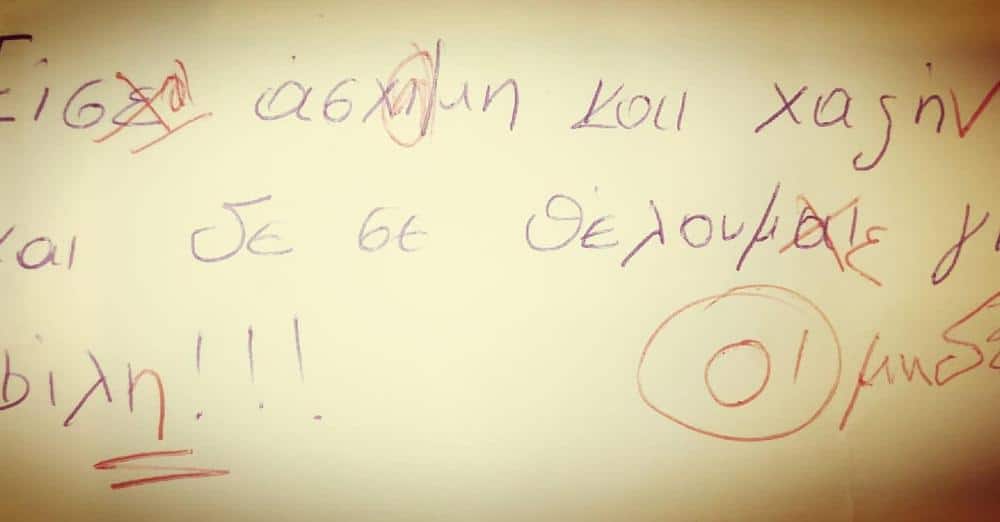 Είσαι άσχημη και χαζή
και δε σε θέλουμε γι
φιλη!!! 0! μηδέ